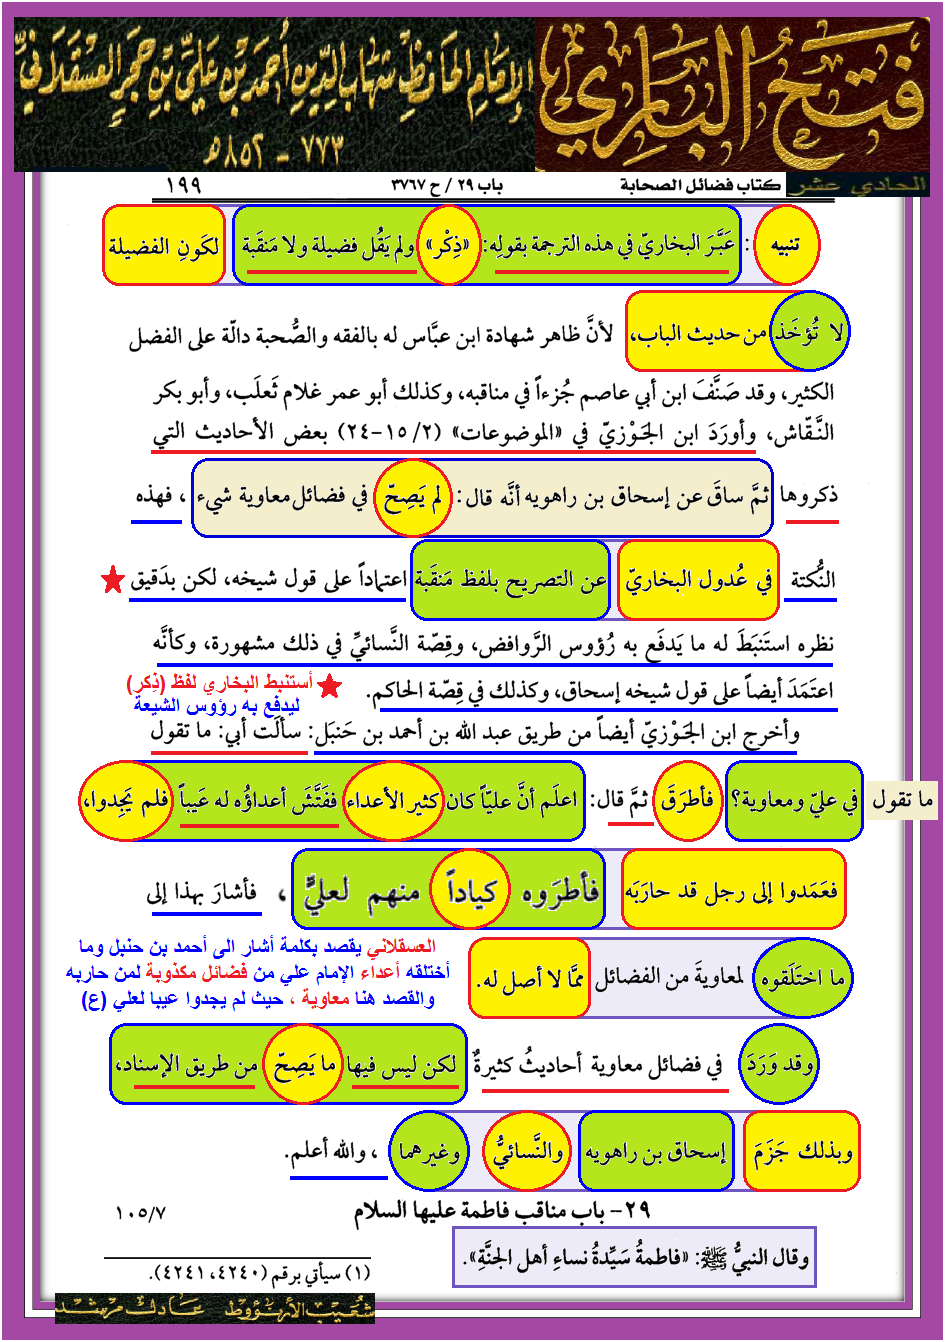 فتح الباري
الإمام الحافظ شهاب الدين أحمد بن علي بن حجر العسقلاني
٧٧٣ - ٨٥٢ هـ
الحادي عشر
كتاب فضائل الصحابة باب ٢٩ / ح ٣٧٦٧ ١٩٩
تنبيه : عَبَّرَ البخاريّ في هذه الترجمة بقولِه: «ذِكْر» ولم يَقُل فضيلة ولا مَنقَبة لكَونِ الفضيلة
لا تُؤخَذ من حديث الباب، لأنَّ ظاهر شهادة ابن عبَّاس له بالفقه والصُّحبة دالّة على الفضل
الكثير، وقد صَنَّفَ ابن أبي عاصم جُزءاً في مناقبه، وكذلك أبو عمر غلام ثَعلَب، وأبو بكر
النَّقّاش، وأورَدَ ابن الجَوْزيّ في «الموضوعات» (٢/ ١٥-٢٤) بعض الأحاديث التي
ذكروها ثمَّ ساقَ عن إسحاق بن راهويه أنَّه قال: لم يَصِحّ في فضائل معاوية شيء ، فهذه
النُّكتة في عُدول البخاريّ عن التصريح بلفظ مَنقَبة اعتماداً على قول شيخه، لكن بدَقيق
نظره استَنبَطَ له ما يَدفَع به رُؤوس الرَّوافض، وقِصّة النَّسائيِّ في ذلك مشهورة، وكأنَّه
اعتَمَدَ أيضاً على قول شيخه إسحاق، وكذلك في قِصّة الحاكم.
أستنبط البخاري لفظ (ذِكر)
ليدفع به رؤوس الشيعة
وأخرج ابن الجَوْزيّ أيضاً من طريق عبد الله بن أحمد بن حَنبَل: سألَت أبي: ما تقول
ما تقول في عليّ ومعاوية؟ فأطرَقَ ثمَّ قال: اعلَم أنَّ عليّاً كان كثير الأعداء ففَتَّشَ أعداؤُه له عَيباً فلم يَجِدوا،
فعَمَدوا إلى رجل قد حارَبَه فأطرَوه كياداً منهم لعليٍّ ، فأشارَ بهذا إلى
العسقلاني يقصد بكلمة أشار الى أحمد بن حنبل وما
أختلقه أعداء الإمام علي من فضائل مكذوبة لمن حاربه
والقصد هنا معاوية ، حيث لم يجدوا عيبا لعلي (ع)
ما اختَلَقوه لمعاويةَ من الفضائل ممَّا لا أصل له.
وقد وَرَدَ في فضائل معاوية أحاديثُ كثيرةٌ لكن ليس فيها ما يَصِحّ من طريق الإسناد،
وبذلك جَزَمَ إسحاق بن راهويه والنَّسائيُّ وغيرهما ، والله أعلم.
٢٩- باب مناقب فاطمة عليها السلام ١٠٥/٧
وقال النبيُّ ﷺ: «فاطمةُ سَيِّدةُ نساءِ أهل الجنَّةِ».
(١) سيأتي برقم (٤٢٤٠، ٤٢٤١).
شعيب الأرنؤوط عادل مرشد